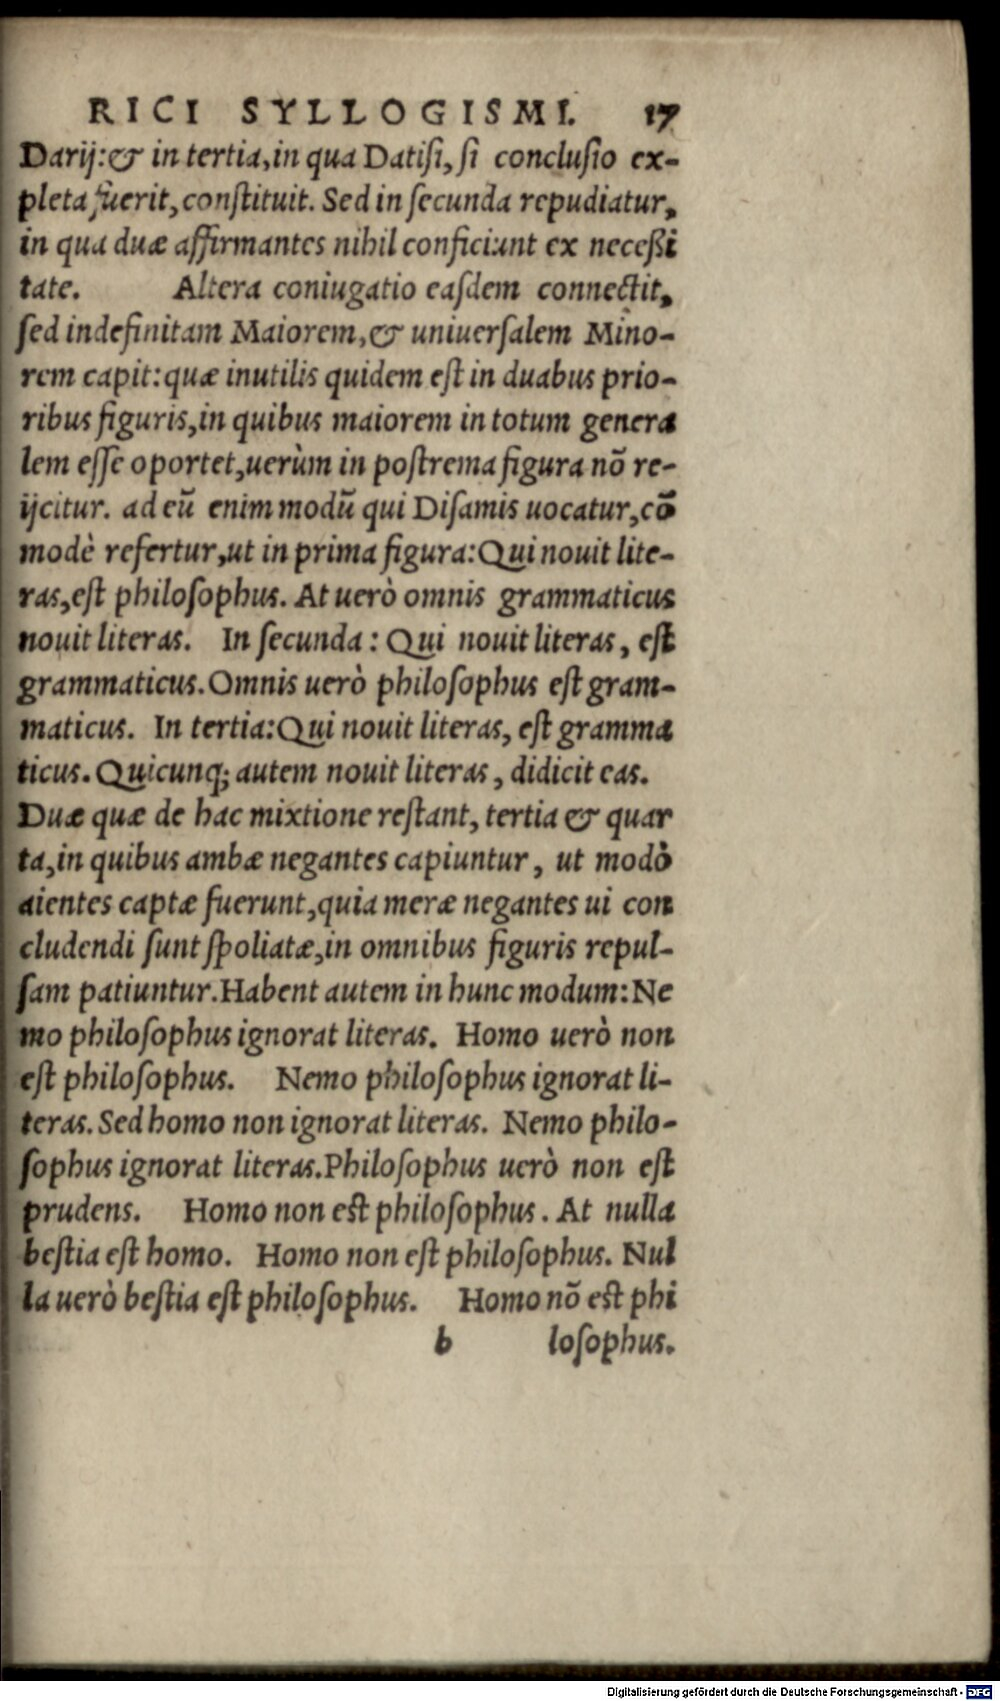 RICI SYLLOGISMI. 17
Darij:& in tertia,in qua Datisi, si conclusio ex-
pleta fuerit, constituit. Sed in secunda repudiatur,
in qua duæ affirmantes nihil conficiunt ex necessi
tate. Altera coniugatio easdem connectit,
sed indefinitam Maiorem,& uniuersalem Mino-
rem capit: quæ inutilis quidem est in duabus prio-
ribus figuris,in quibus maiorem in totum genera
lem esse oportet,uerùm in postrema figura nõ re-
ijcitur. ad eũ enim modũ qui Disamis uocatur,cõ
modè refertur,ut in prima figura: Qui nouit lite-
ras,est philosophus. At uerò omnis grammaticus
nouit literas. In secunda: Qui nouit literas, est
grammaticus. Omnis uerò philosophus est gram-
maticus. In tertia: Qui nouit literas, est gramma
ticus. Quicunq; autem nouit literas, didicit eas.
Duæ quæ de hac mixtione restant, tertia & quar
ta,in quibus ambæ negantes capiuntur, ut modò
aientes captæ fuerunt,quia meræ negantes ui con
cludendi sunt spoliatæ,in omnibus figuris repul-
sam patiuntur. Habent autem in hunc modum: Ne
mo philosophus ignorat literas. Homo uerò non
est philosophus. Nemo philosophus ignorat li-
teras. Sed homo non ignorat literas. Nemo philo-
sophus ignorat literas. Philosophus uerò non est
prudens. Homo non est philosophus. At nulla
bestia est homo. Homo non est philosophus. Nul
la uerò bestia est philosophus. Homo nõ est phi
b losophus.
Digitalisierung gefördert durch die Deutsche Forschungsgemeinschaft - DFG